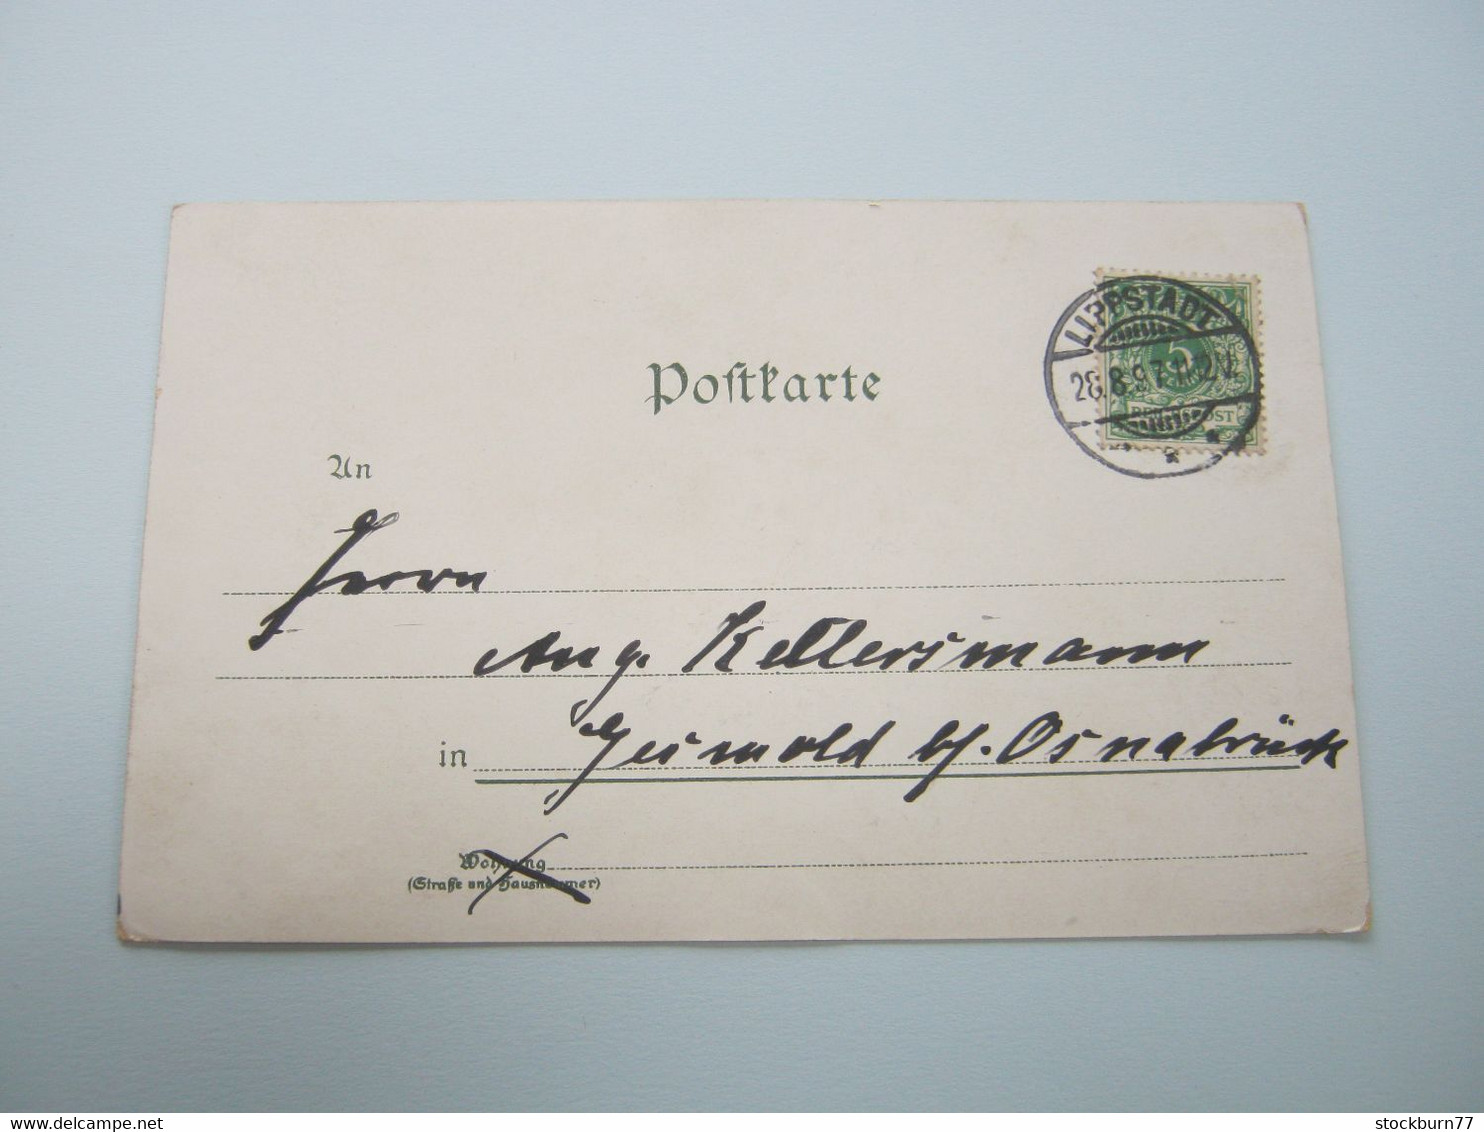 LIPPSTADT
5
28.8.97.11-12V.
Postkarte
An
Herrn
Aug. Kellersmann
in
b/. Osnabrück
Wohnung
(Straße und Hausnummer)
delcampe.net
stockburn77